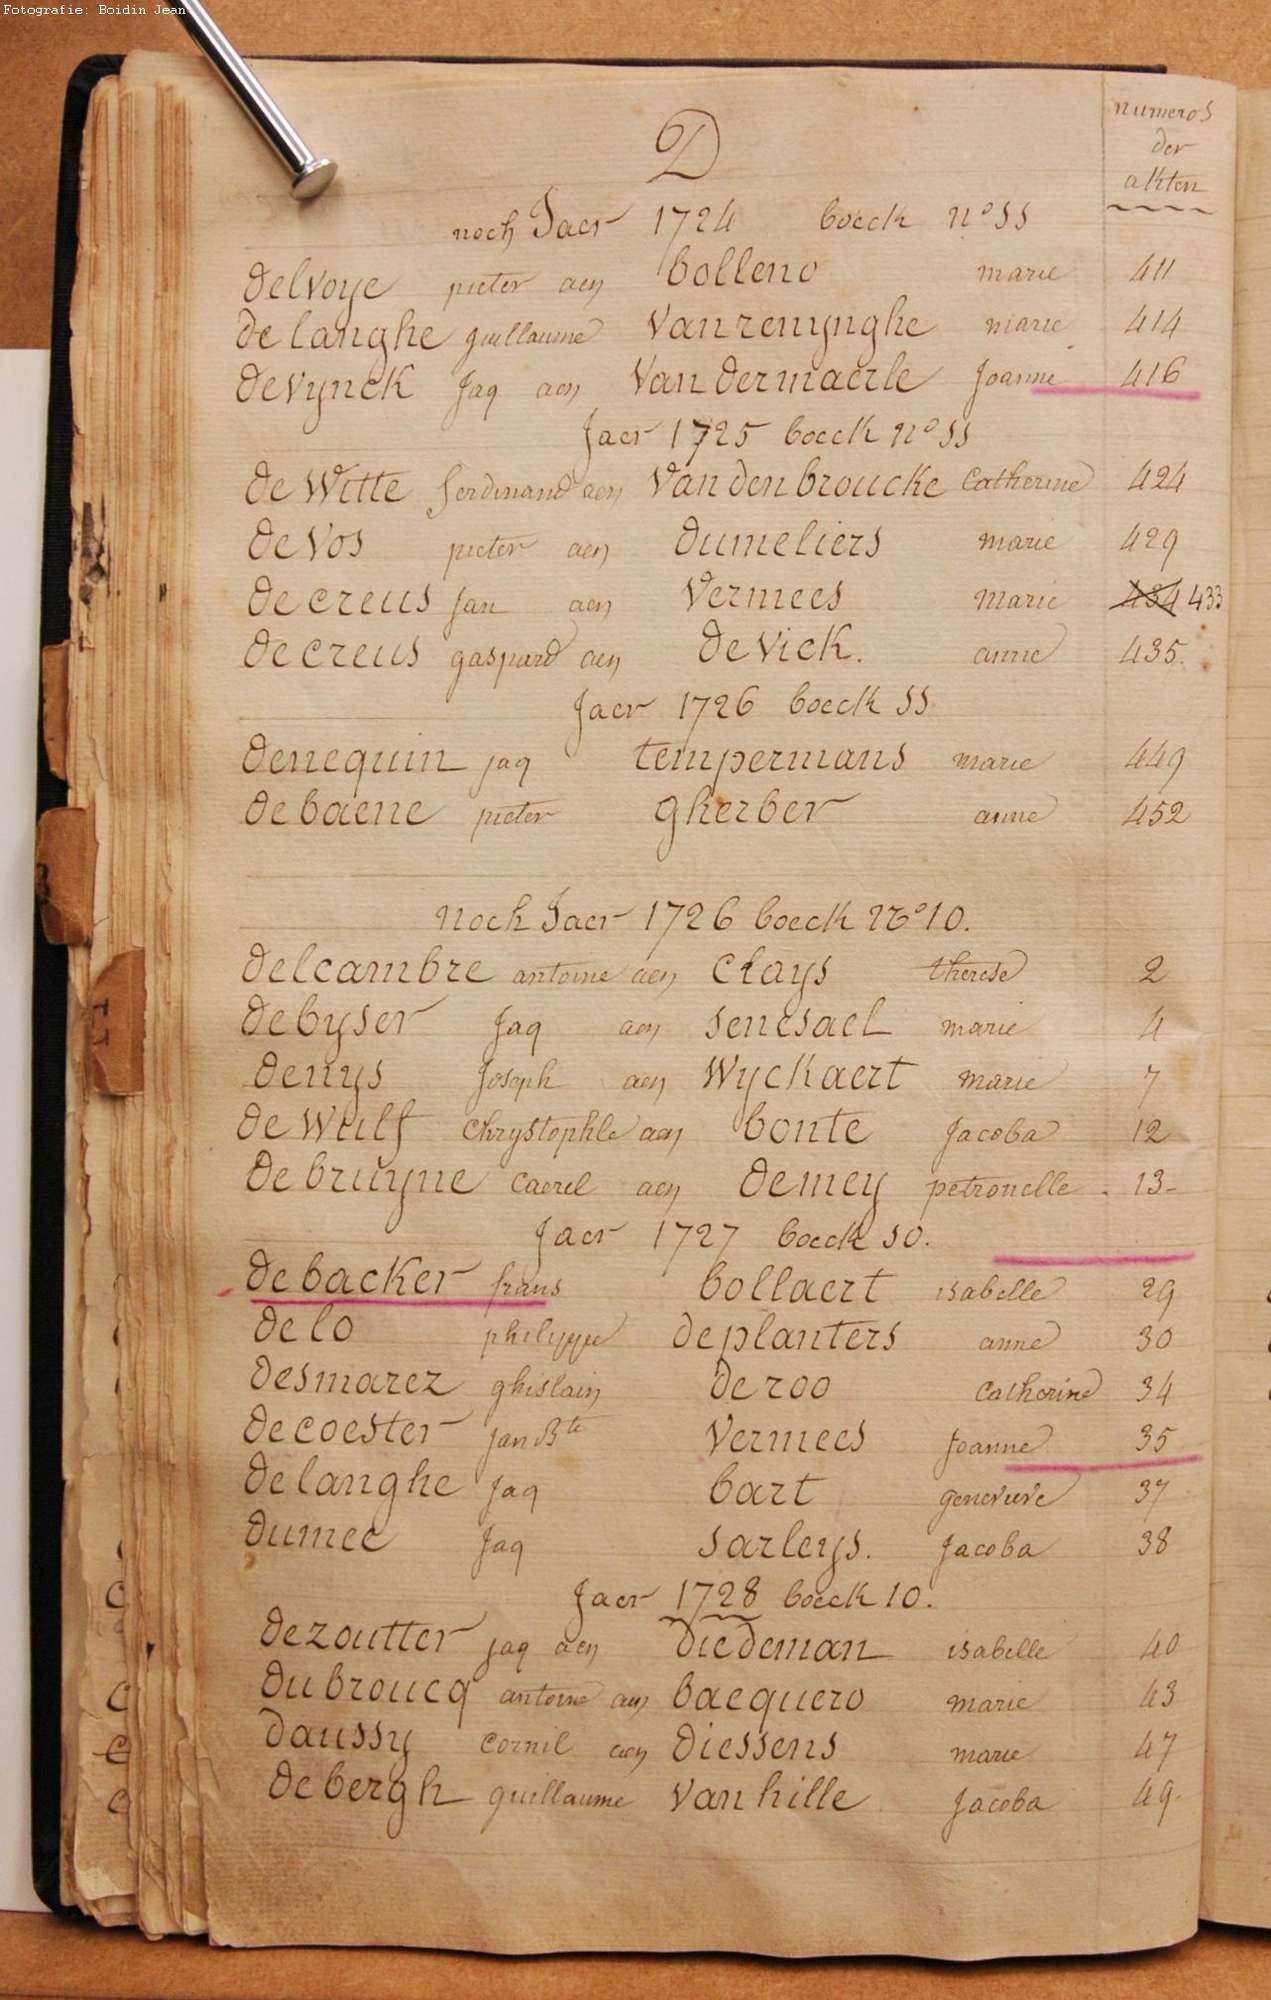 Fotografie: Boidin Jean
numeros
der
akten
D
noch Jaer 1724 boeck n° 55
delvoye pieter aen bolleno marie 411
de langhe guillaume vanrenynghe marie 414
devynck Jaq aen vandermaerle Joanne 416
Jaer 1725 boeck n° 55
de Witte ferdinand aen vandenbroucke Catherine 424
de vos pieter aen dumeliers marie 429
decreus Jan aen vermees Marie 434 433
decreus gaspard aen devick. anne 435.
Jaer 1726 boeck 55
denequin jaq tempermans marie 449
debaene pieter gherber anne 452
noch Jaer 1726 boeck N° 10.
delcambre antoine aen Clays therese 2
debyser Jaq aen senesael marie 4
denys Joseph aen Wyckaert marie 7
de Wulf Chrystophle aen bonte Jacoba 12
de bruyne Caerel aen demey petronelle 13
Jaer 1727 boeck 10.
debacker frans bollaert isabelle 29
delo philippe deplanters anne 30
desmarez ghislain deroo Catherine 34
decoester jan Bte vermees Joanne 35
delanghe Jaq bart genevieve 37
dumee Jaq sarleys. Jacoba 38
Jaer 1728 boeck 10.
dezoutter jaq aen diedeman isabelle 40
dubroucq antoine aen bacquero marie 43
daussy Cornil aen diessens marie 47
debergh guillaume vanhille Jacoba 49.